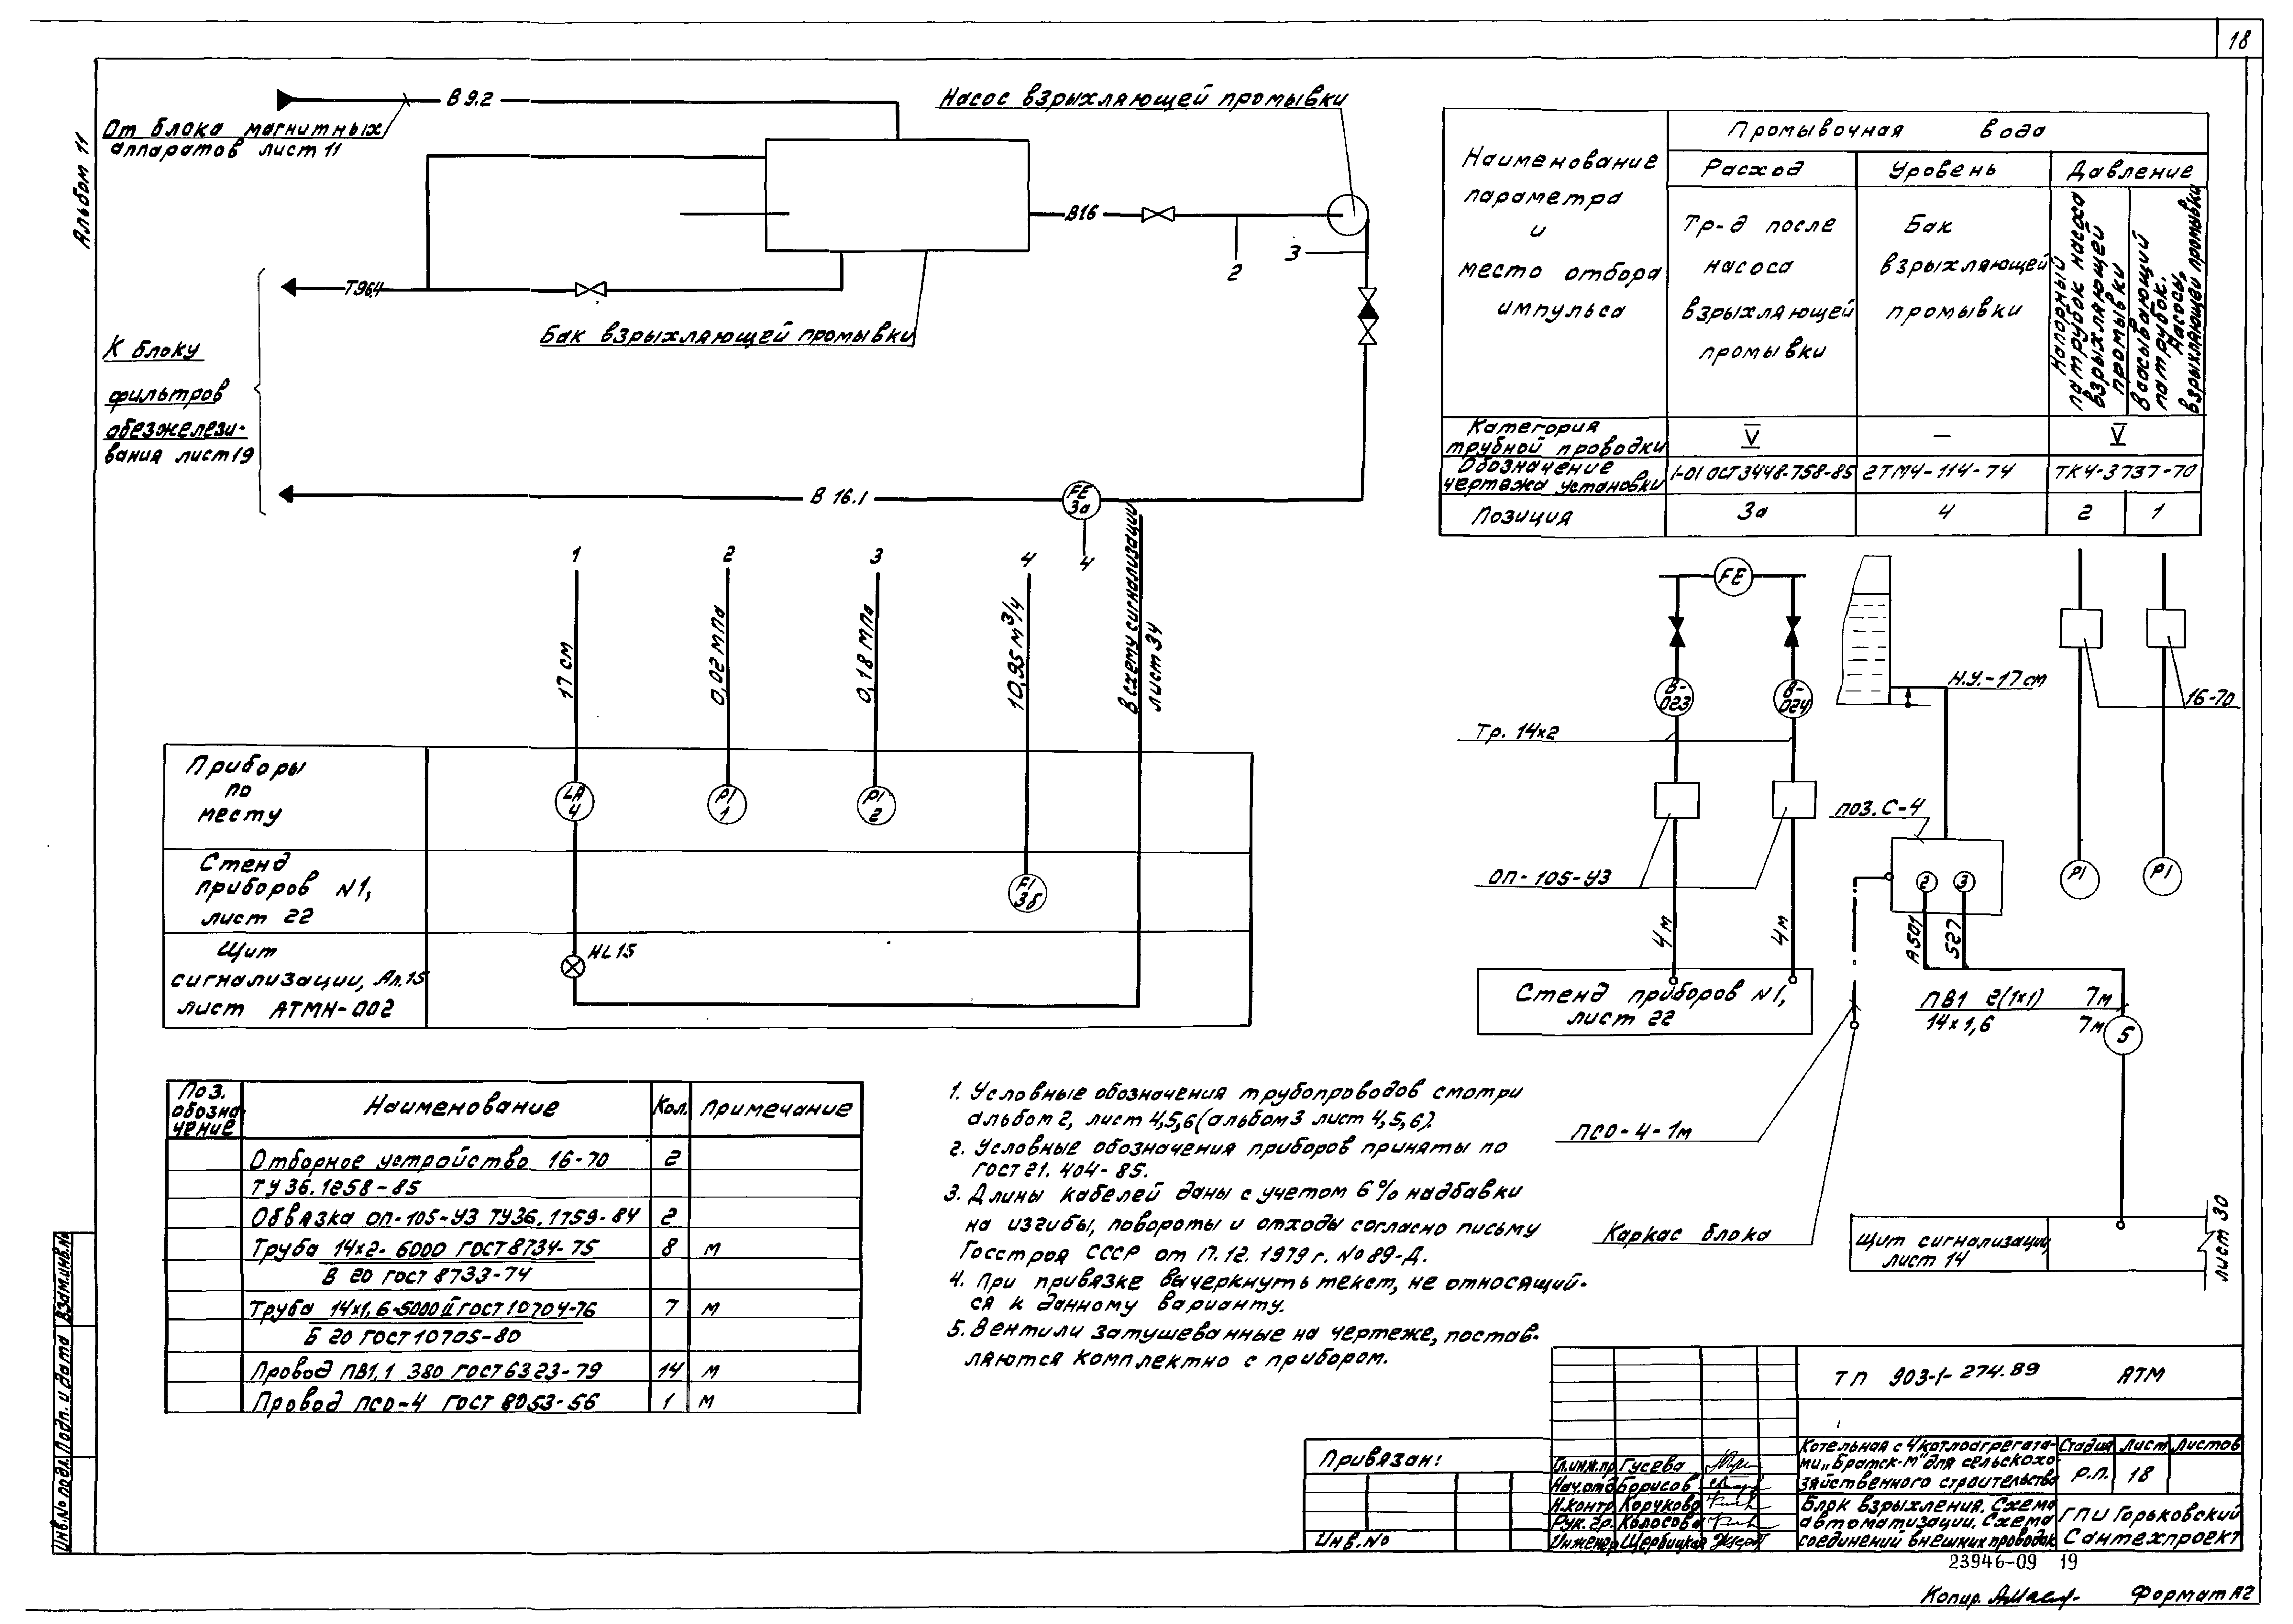 18
Альбом 11
В 9.2
От блока магнитных
аппаратов лист 11
Насос взрыхляющей промывки
В16
2
3
Т96.4
Бак взрыхляющей промывки
К блоку
фильтров
обезжелези-
вания лист 19
В 16.1
FE
3а
4
1
2
3
4
17 см
0,02 МПа
0,18 МПа
10,95 м³/ч
В схему сигнализации
лист 34
Приборы
по
месту
LA
4
PI
1
PI
2
Стенд
приборов N1,
лист 22
FI
3б
Щит
сигнализации, Ал.15
лист АТМН-002
HL15
Наименование
параметра
и
место отбора
импульса
Промывочная вода
Расход
Уровень
Давление
Тр-д после
насоса
взрыхляющей
промывки
Бак
взрыхляющей
промывки
Напорный
патрубок насоса
взрыхляющей
промывки
Всасывающий
патрубок.
Насосы
взрыхляющей промывки
Категория
трубной проводки
V
—
V
Обозначение
чертежа установки
1-01 ОСТ3448-758-85
2ТМ4-114-74
ТК4-3737-70
Позиция
3а
4
2
1
FE
В-
023
В-
024
Тр. 14×2
ОП-105-У3
4м
4м
Стенд приборов N1,
лист 22
Н.У.-17 cm
поз. С-4
2
3
А501
527
16-70
PI
PI
ПВ1 2(1×1) 7м
14×1,6 7м
5
ПСО-4-1м
Каркас блока
Щит сигнализации
лист 14
лист 30
Поз.
обозна-
чение
Наименование
Кол.
Примечание
Отборное устройство 16-70
2
ТУ 36.1258-85
Обвязка ОП-105-У3 ТУ36.1759-84
2
Труба 14×2-6000 ГОСТ 8734-75
8
м
В 20 ГОСТ 8733-74
Труба 14×1,6-5000 II ГОСТ 10704-76
7
м
Б 20 ГОСТ 10705-80
Провод ПВ1.1 380 ГОСТ 6323-79
14
м
Провод ПСО-4 ГОСТ 8053-56
1
м
1. Условные обозначения трубопроводов смотри
альбом 2, лист 4,5,6 (альбом 3 лист 4,5,6).
2. Условные обозначения приборов приняты по
ГОСТ 21.404-85.
3. Длины кабелей даны с учетом 6% надбавки
на изгибы, повороты и отходы согласно письму
Госстроя СССР от 17.12.1979 г. №89-Д.
4. При привязке вычеркнуть текст, не относящий-
ся к данному варианту.
5. Вентили затушеванные на чертеже, постав-
ляются комплектно с прибором.
Взам.инв.№
Подп. и дата
Инв.№ подл.
Привязан:
Инв.№
Гл.инж.пр. Гусева
Нач.отд. Борисов
Н.контр. Корчкова
Рук. гр. Колосова
Инженер Щербицкая
ТП 903-1-274.89 АТМ
Котельная с 4 котлоагрегата-
ми „Братск-М" для сельскохо-
зяйственного строительства
Стадия
Лист
Листов
Р.П.
18
Блок взрыхления. Схема
автоматизации. Схема
соединений внешних проводок
ГПИ Горьковский
Сантехпроект
23946-09 19
Копир.
Формат А2